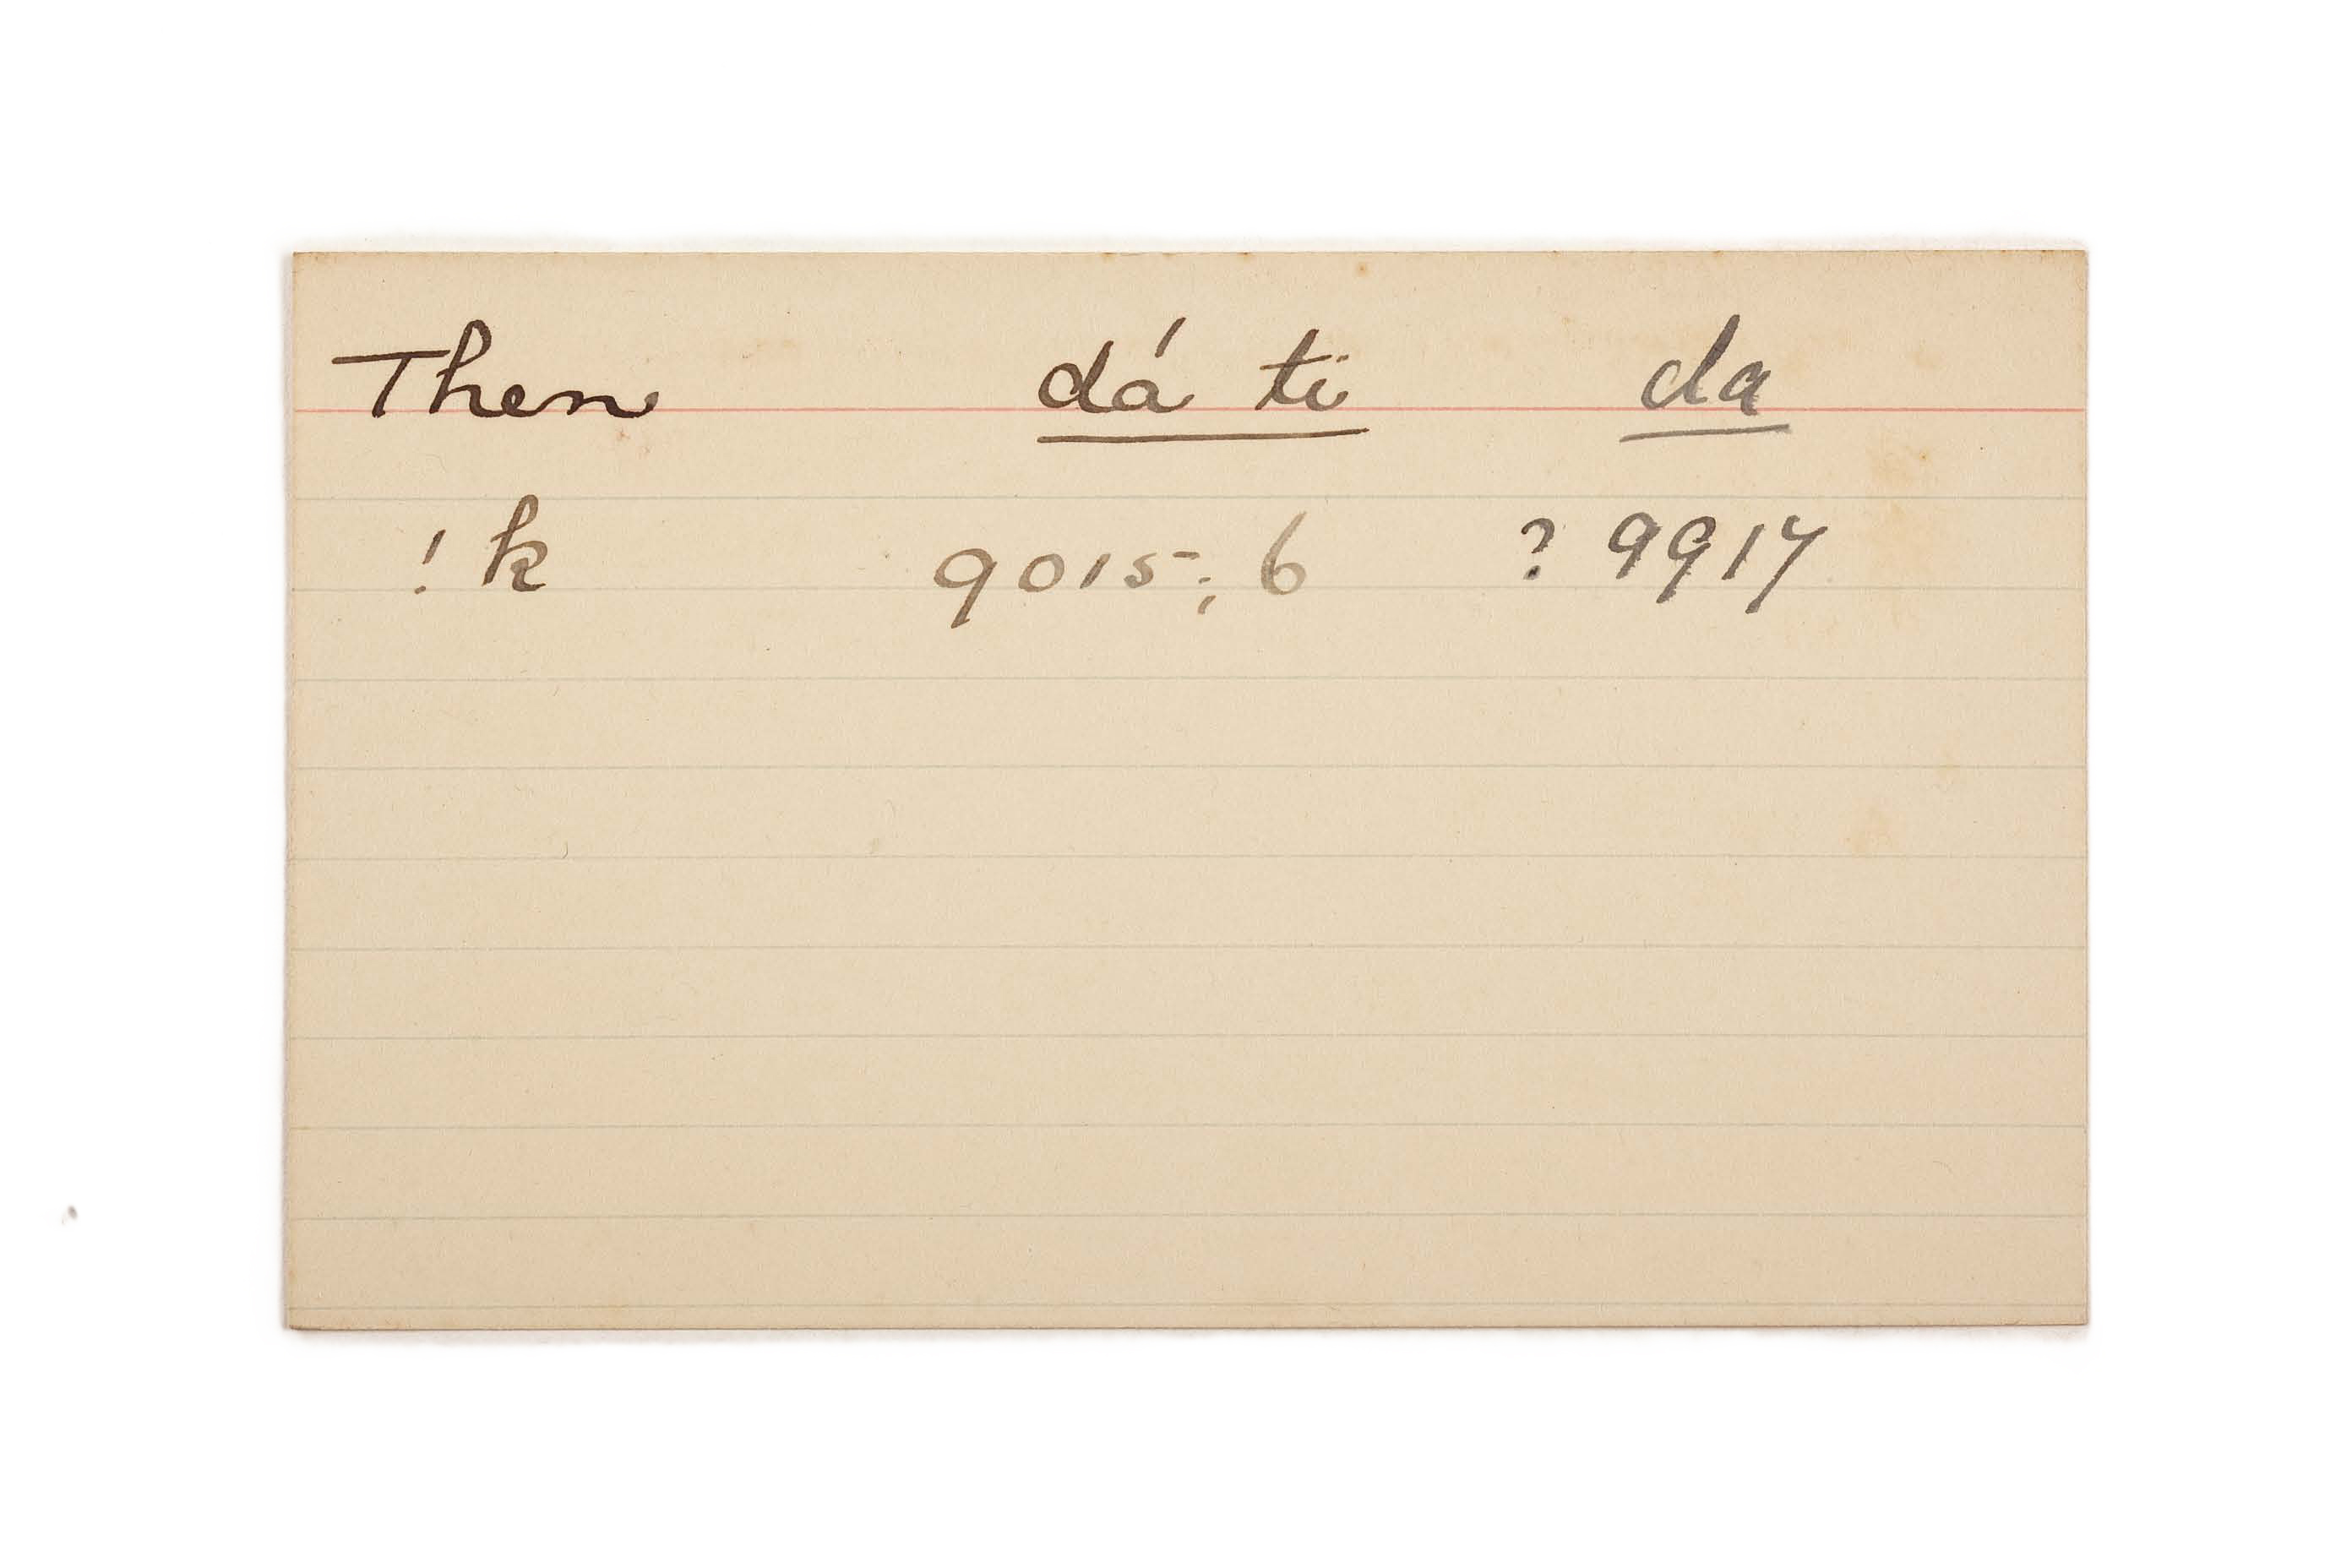 Then dá ti da
! k 9015; 6 ? 9917